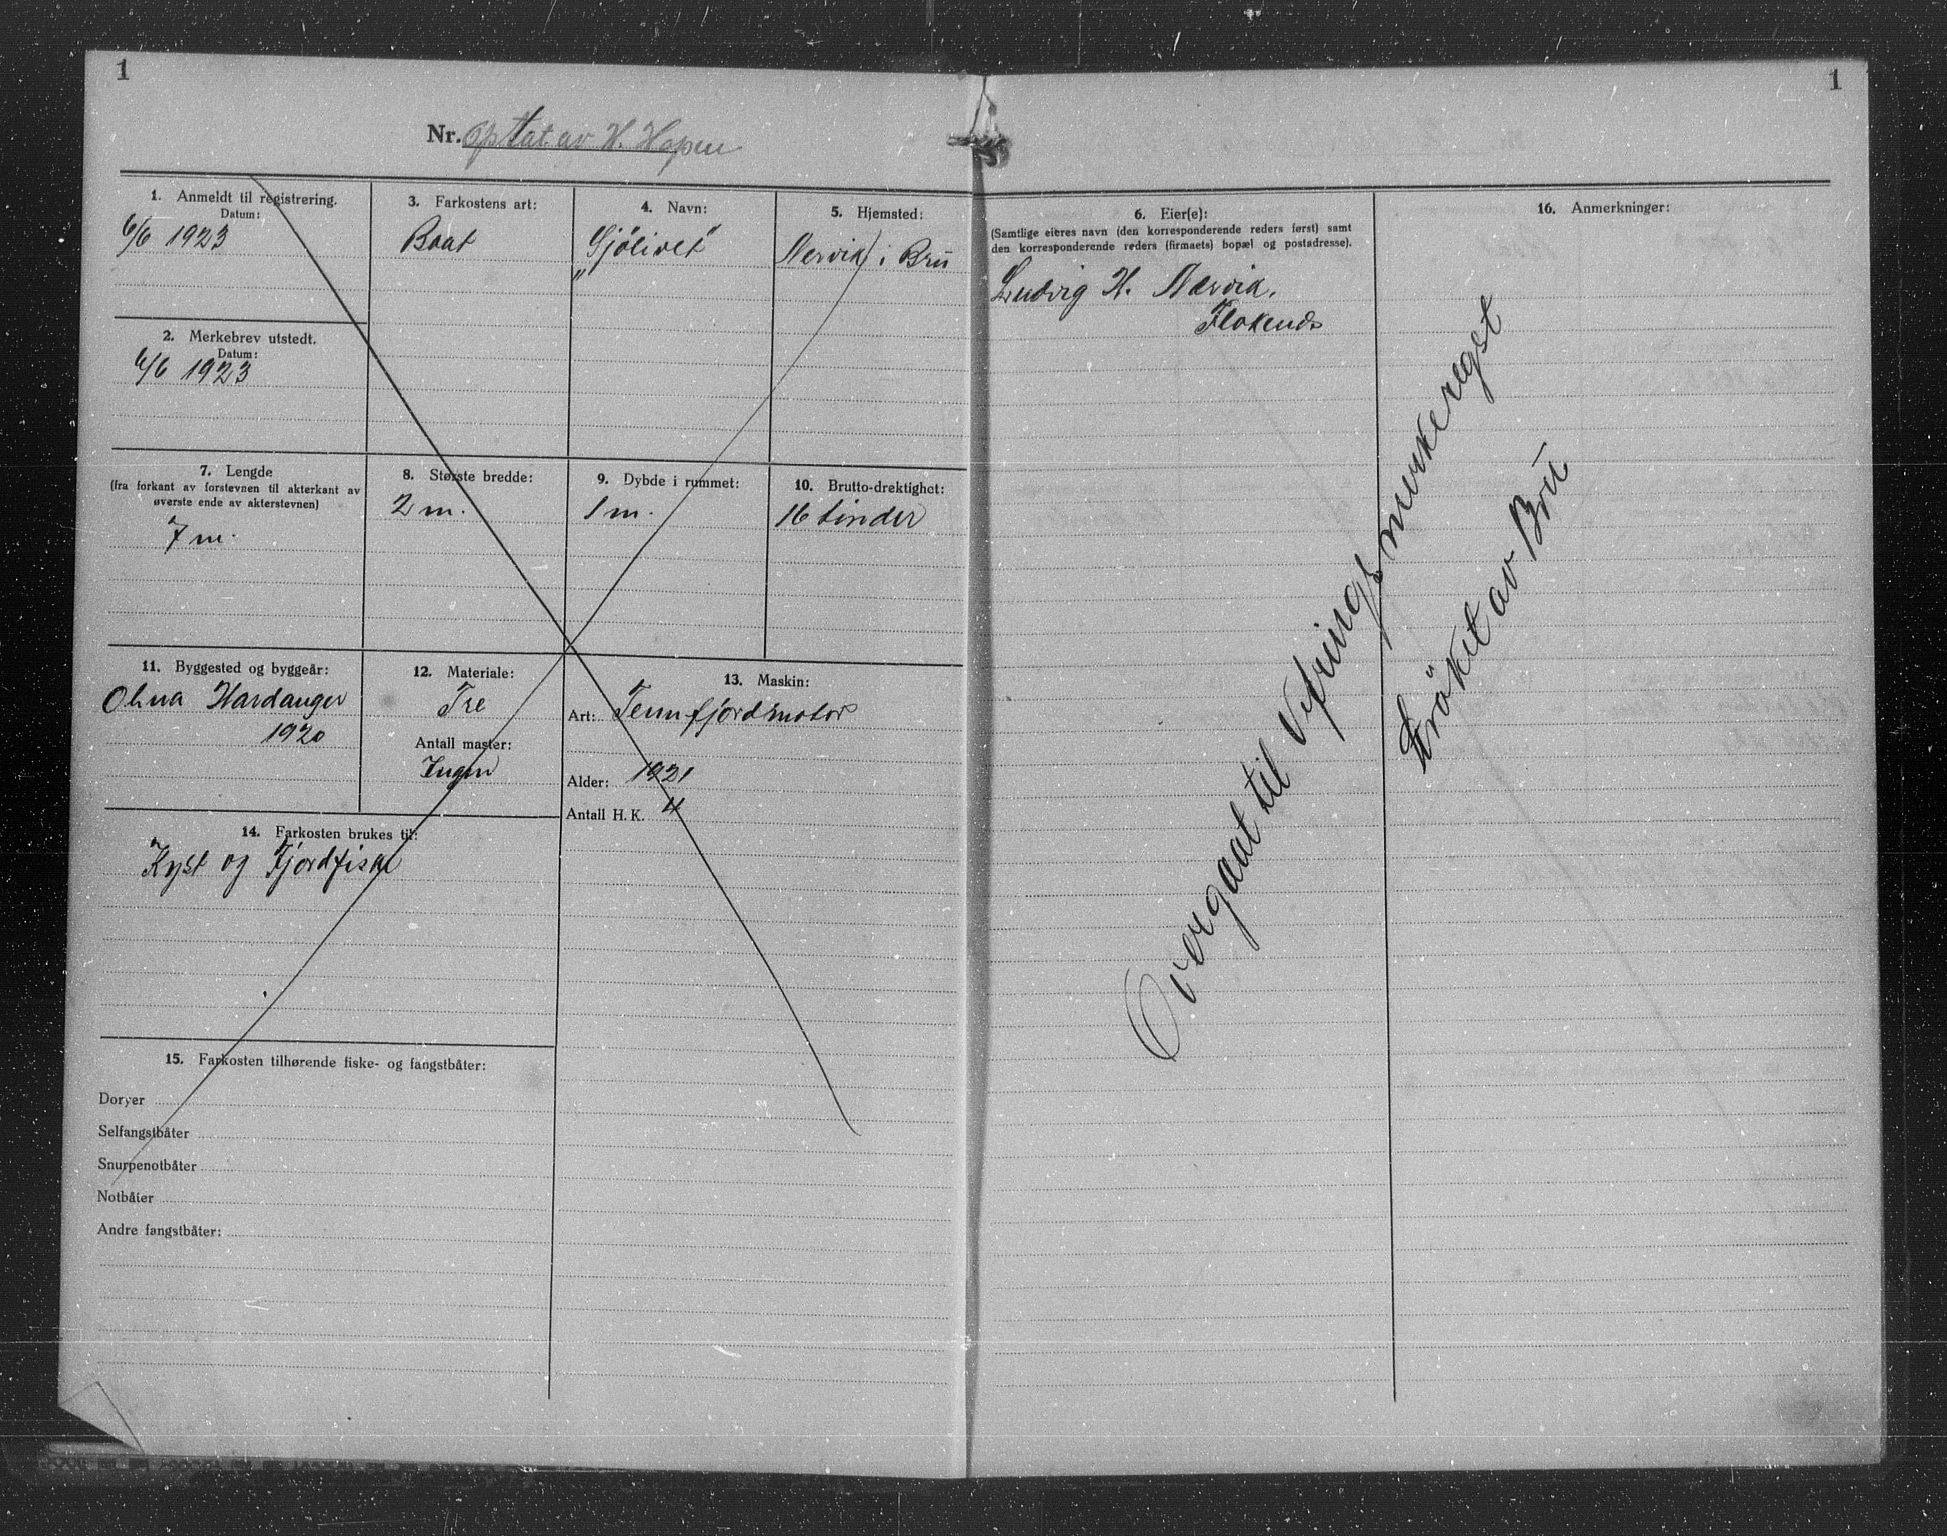 1
1
Nr. Optat av H. Hopen
1. Anmeldt til registrering.
Datum:
6/6 1923
2. Merkebrev utstedt.
Datum:
6/6 1923
3. Farkostens art:
Baat
4. Navn:
"Sjölivet"
5. Hjemsted:
Nervik i Brü
7. Lengde
(fra forkant av forstevnen til akterkant av
øverste ende av akterstevnen)
7 m.
8. Største bredde:
2 m.
9. Dybde i rummet:
1 m.
10. Brutto-drektighet:
16 tönder
11. Byggested og byggeår:
Hardanger
1920
12. Materiale:
Tre
Antall master:
Ingen
13. Maskin:
Art: Tennfjordmotor
Alder: 1921
Antall H. K. 4
14. Farkosten brukes til:
Kyst og Fjordfiske
15. Farkosten tilhørende fiske- og fangstbåter:
Doryer
Selfangstbåter
Snurpenotbåter
Notbåter
Andre fangstbåter:
6. Eier(e):
(Samtlige eieres navn (den korresponderende reders først) samt
den korresponderende reders (firmaets) bopæl og postadresse).
Ludvig H. Nærvik.
Flokenes
16. Anmerkninger:
Overgaat til Vefrings merkeregst
Ströket av Brü